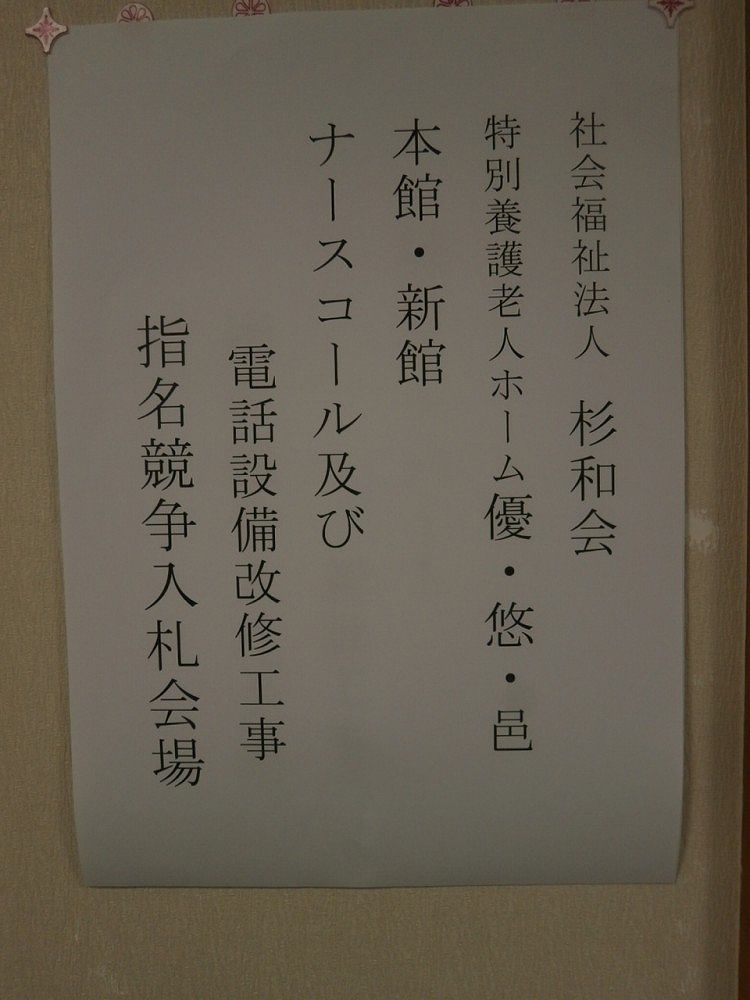 社会福祉法人　杉和会
特別養護老人ホーム優・悠・邑
本館・新館
ナースコール及び
電話設備改修工事
指名競争入札会場